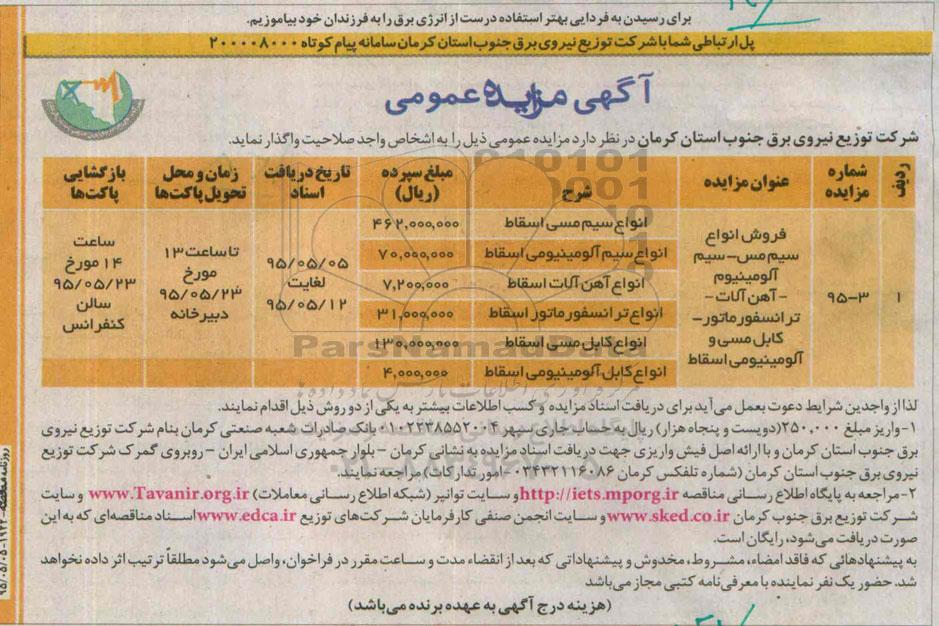 برای رسیدن به فردایی بهتر استفاده درست از انرژی برق را به فرزندان خود بیاموزیم.
پل ارتباطی شما با شرکت توزیع نیروی برق جنوب استان کرمان سامانه پیام کوتاه ۲۰۰۰۰۸۰۰۰
آگهی مزایده عمومی
شرکت توزیع نیروی برق جنوب استان کرمان در نظر دارد مزایده عمومی ذیل را به اشخاص واجد صلاحیت واگذار نماید.
ردیف
شماره مزایده
عنوان مزایده
شرح
مبلغ سپرده (ریال)
تاریخ دریافت اسناد
زمان و محل تحویل پاکت‌ها
بازگشایی پاکت‌ها
۱
۹۵-۳
فروش انواع
سیم مس- سیم
آلومینیوم
- آهن آلات -
ترانسفورماتور-
کابل مسی و
آلومینیومی اسقاط
انواع سیم مسی اسقاط ۴۶۲,۰۰۰,۰۰۰
انواع سیم آلومینیومی اسقاط ۷۰,۰۰۰,۰۰۰
انواع آهن آلات اسقاط ۷,۲۰۰,۰۰۰
انواع ترانسفورماتور اسقاط ۳۱,۰۰۰,۰۰۰
انواع کابل مسی اسقاط ۱۳۰,۰۰۰,۰۰۰
انواع کابل آلومینیومی اسقاط ۴,۰۰۰,۰۰۰
۹۵/۰۵/۰۵
لغایت
۹۵/۰۵/۱۲
تا ساعت ۱۳
مورخ
۹۵/۰۵/۲۳
دبیرخانه
ساعت
۱۴ مورخ
۹۵/۰۵/۲۳
سالن
کنفرانس
ParsNamadData
لذا از واجدین شرایط دعوت بعمل می‌آید برای دریافت اسناد مزایده و کسب اطلاعات بیشتر به یکی از دو روش ذیل اقدام نمایند.
۱-واریز مبلغ ۲۵۰,۰۰۰(دویست و پنجاه هزار) ریال به حساب جاری سپهر ۰۱۰۲۲۳۸۵۵۲۰۰۴ بانک صادرات شعبه صنعتی کرمان بنام شرکت توزیع نیروی
برق جنوب استان کرمان و با ارائه اصل فیش واریزی جهت دریافت اسناد مزایده به نشانی کرمان - بلوار جمهوری اسلامی ایران - روبروی گمرک شرکت توزیع
نیروی برق جنوب استان کرمان (شماره تلفکس کرمان ۰۳۴۳۲۱۱۶۰۸۶ -امور تدارکات) مراجعه نمایند.
۲-مراجعه به پایگاه اطلاع رسانی مناقصه http://iets.mporg.ir و سایت توانیر (شبکه اطلاع رسانی معاملات) www.Tavanir.org.ir و سایت
شرکت توزیع برق جنوب کرمان www.sked.co.ir و سایت انجمن صنفی کارفرمایان شرکت‌های توزیع www.edca.ir اسناد مناقصه‌ای که به این
صورت دریافت می‌شود، رایگان است.
به پیشنهادهائی که فاقد امضاء، مشروط، مخدوش و پیشنهاداتی که بعد از انقضاء مدت و ساعت مقرر در فراخوان، واصل می‌شود مطلقاً ترتیب اثر داده نخواهد
شد. حضور یک نفر نماینده با معرفی‌نامه کتبی مجاز می‌باشد
(هزینه درج آگهی به عهده برنده می‌باشد)